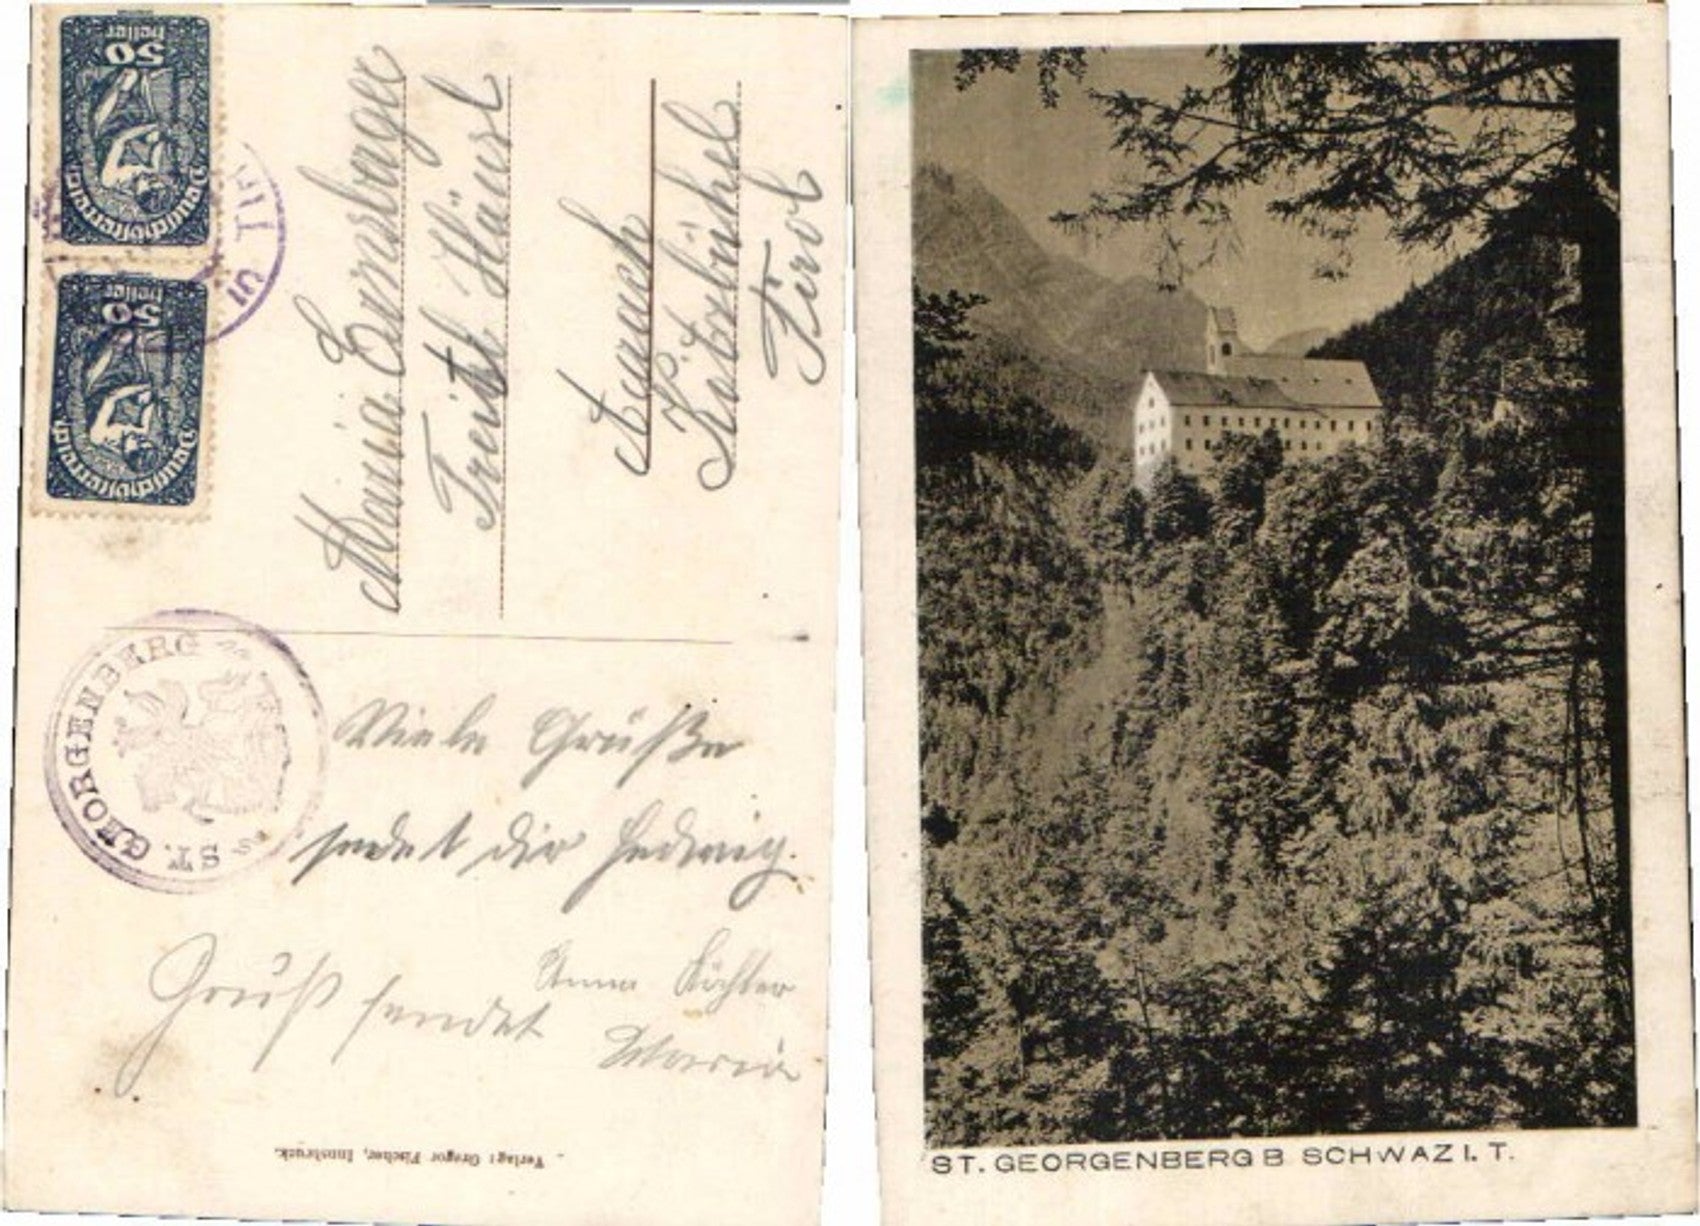 50
heller
Deutschösterreich
50
heller
Deutschösterreich
Maria Ernsberger
Treitl Häusl
Aurach
Kitzbühel
Tirol
ST. GEORGENBERG
Viele Grüße
sendet dir Hedwig.
Gruß sendet
Anna
Maria
Verlag: Gregor Fischer, Innsbruck.
ST. GEORGENBERG B SCHWAZ I. T.